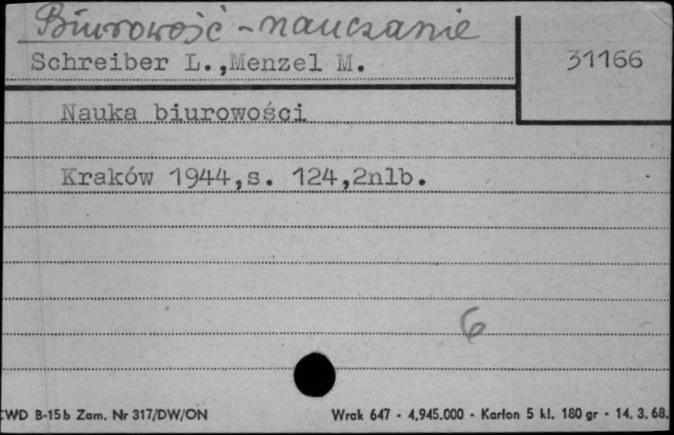 Biurowość - nauczanie
Schreiber L.,Menzel M.
31166
Nauka biurowości
Kraków 1944,s. 124,2nlb.
6
CWD B-15b Zam. Nr 317/DW/ON
Wrak 647 - 4.945.000 - Karton 5 kl. 180 gr - 14. 3. 68.